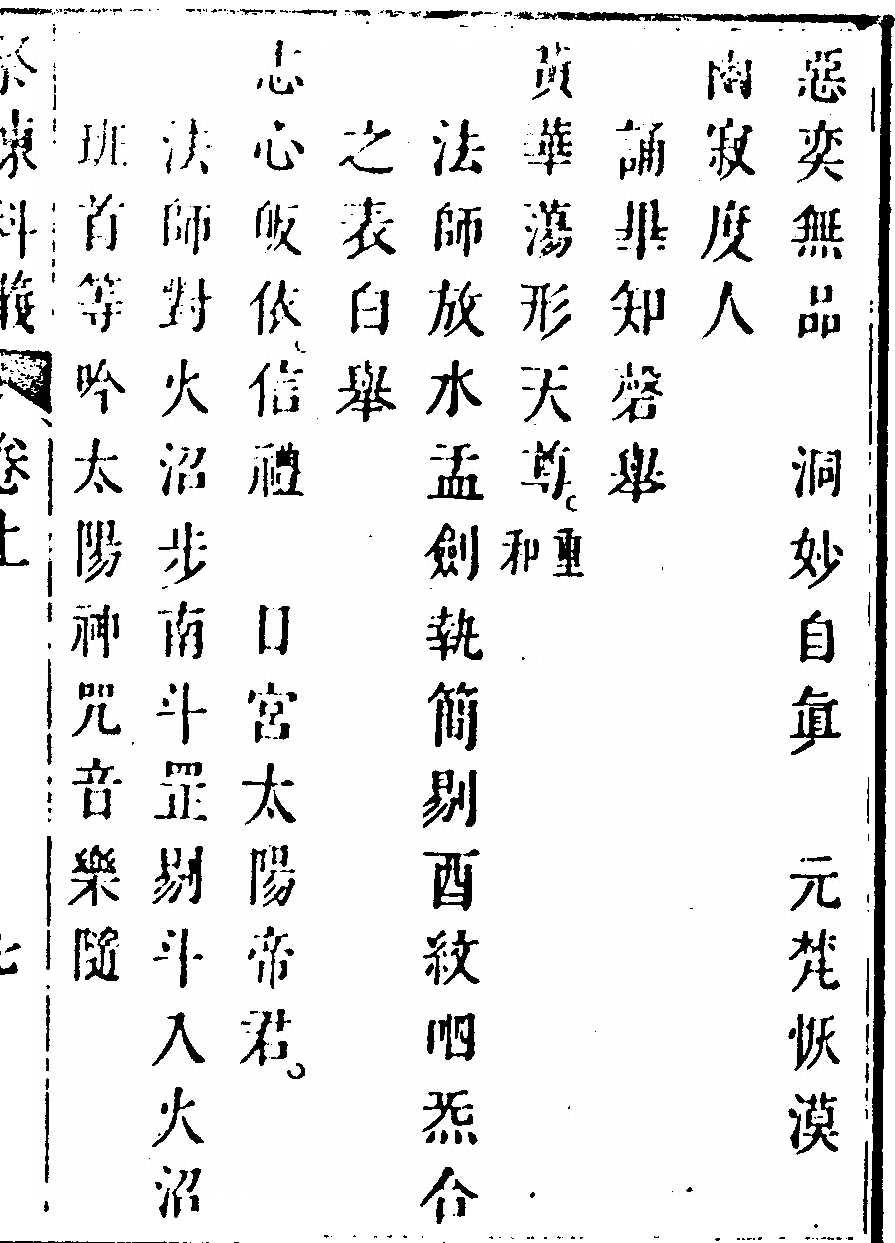 惡奕無品　洞妙自眞　元梵恢漠
幽寂度人
誦畢知磬舉
黃華蕩形天尊。重和
法師放水盂劍執簡剔酉紋咽炁合
之表白舉
志心皈依信禮　日宮太陽帝君。
法師對火沼步南斗罡剔斗入火沼
班首等吟太陽神咒音樂隨
卷上